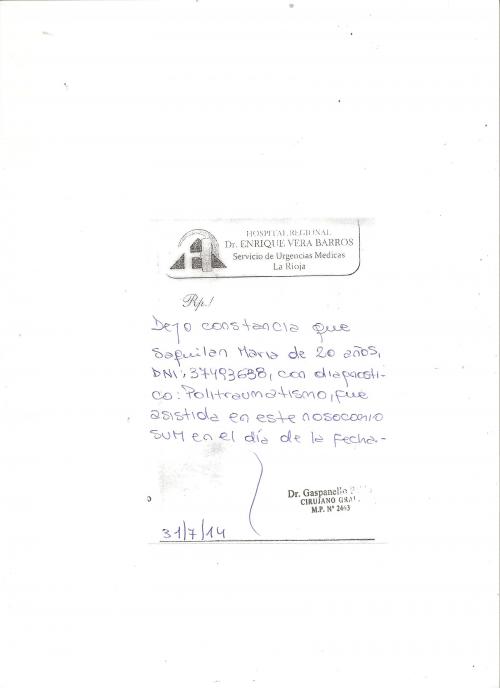 HOSPITAL REGIONAL
Dr. ENRIQUE VERA BARROS
Servicio de Urgencias Medicas
La Rioja
Rp./
Dejo constancia que
Saquilan Maria de 20 años,
DNI: 37493698, con diagnosti-
co: Politraumatismo, fue
asistida en este nosocomio
SUM en el día de la fecha.-
Dr. Gaspanello
CIRUJANO GRAL.
M.P. Nº 2463
31/7/14